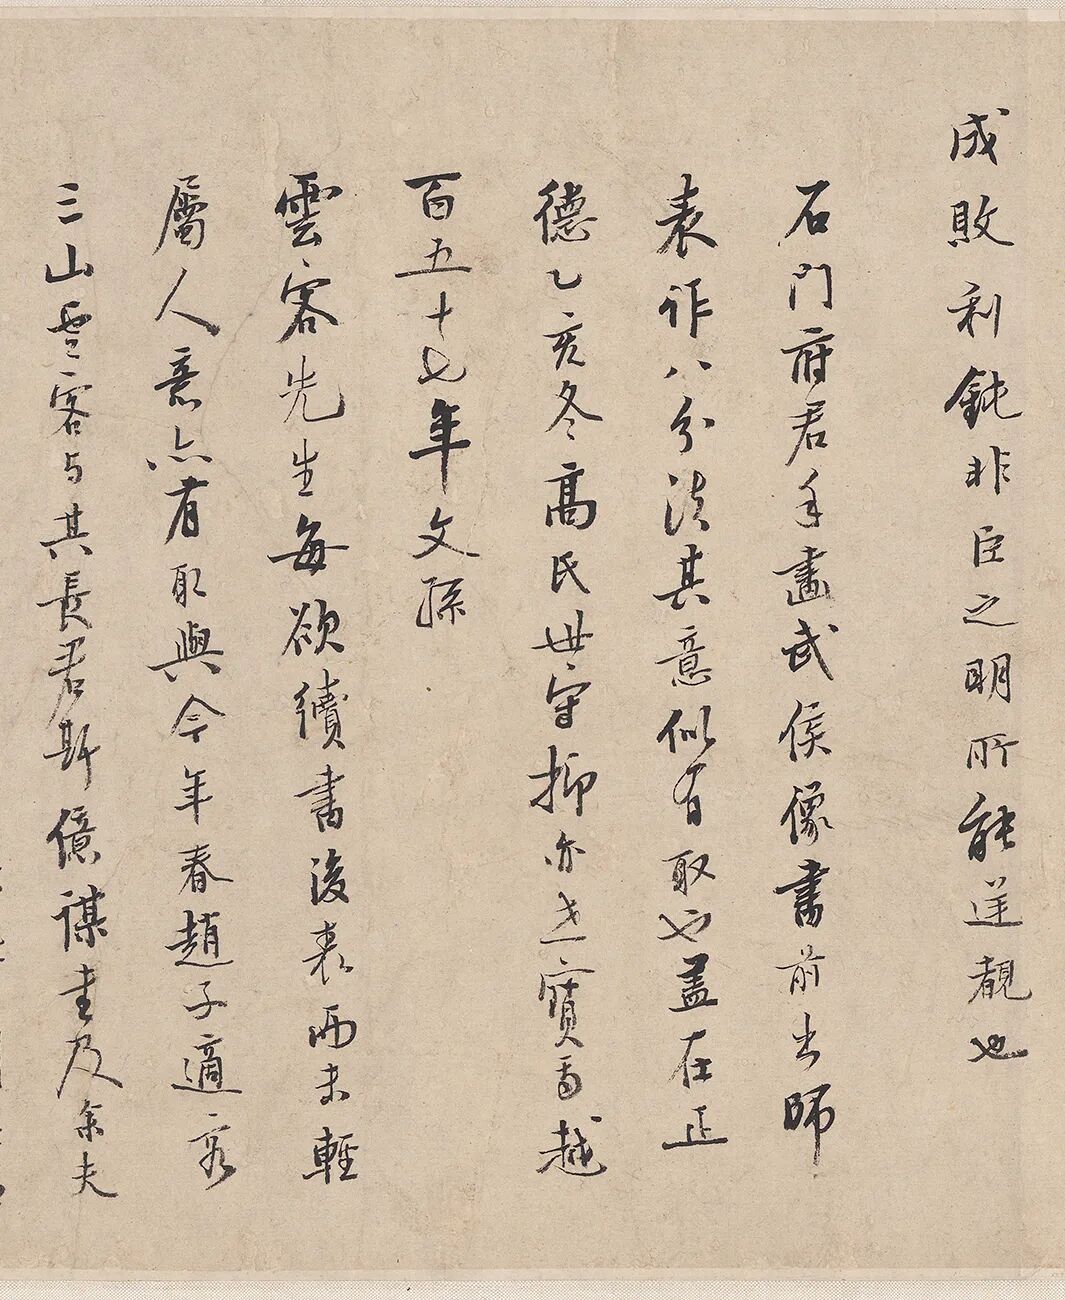 成敗利鈍非臣之明所能逆覩也
石門府君手畫武侯像書前出師
表作八分法其意似有取也蓋在正
德乙亥冬高氏世守抑亦世寶焉越
百五十七年文孫
雲客先生每欲續書後表而未輕
屬人意亦有取與今年春趙子適客
三山雲客與其長君斯億謀書及余夫